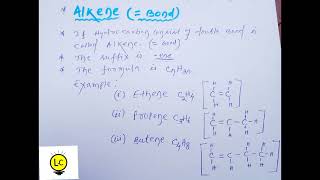 * Alkene (= Bond)
* If Hydrocarbon consist of double bond is
called Alkene. (= bond)
* The suffix is -ene
* The formula is CnH2n
Example:
(i) Ethene C2H4
(ii) Propene C3H6
(iii) Butene C4H8
LC